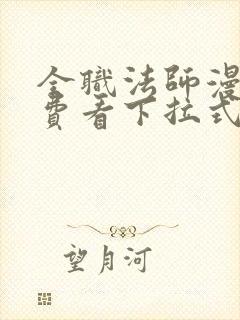 全職法師漫
費看下拉式
望月河